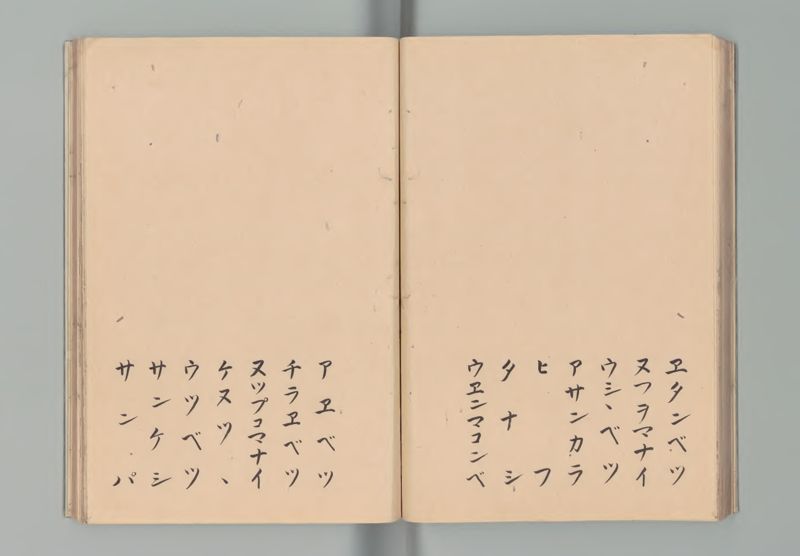 ヱタンベツ
ヌフヲマナイ
ウシヽベツ
アサンカラ
ヒフ
タナシ
ウヱンマコンベ
アヱベツ
チラヱベツ
ヌツプコマナイ
ケヌツヽ
ウツベツ
サンケシ
サンパ